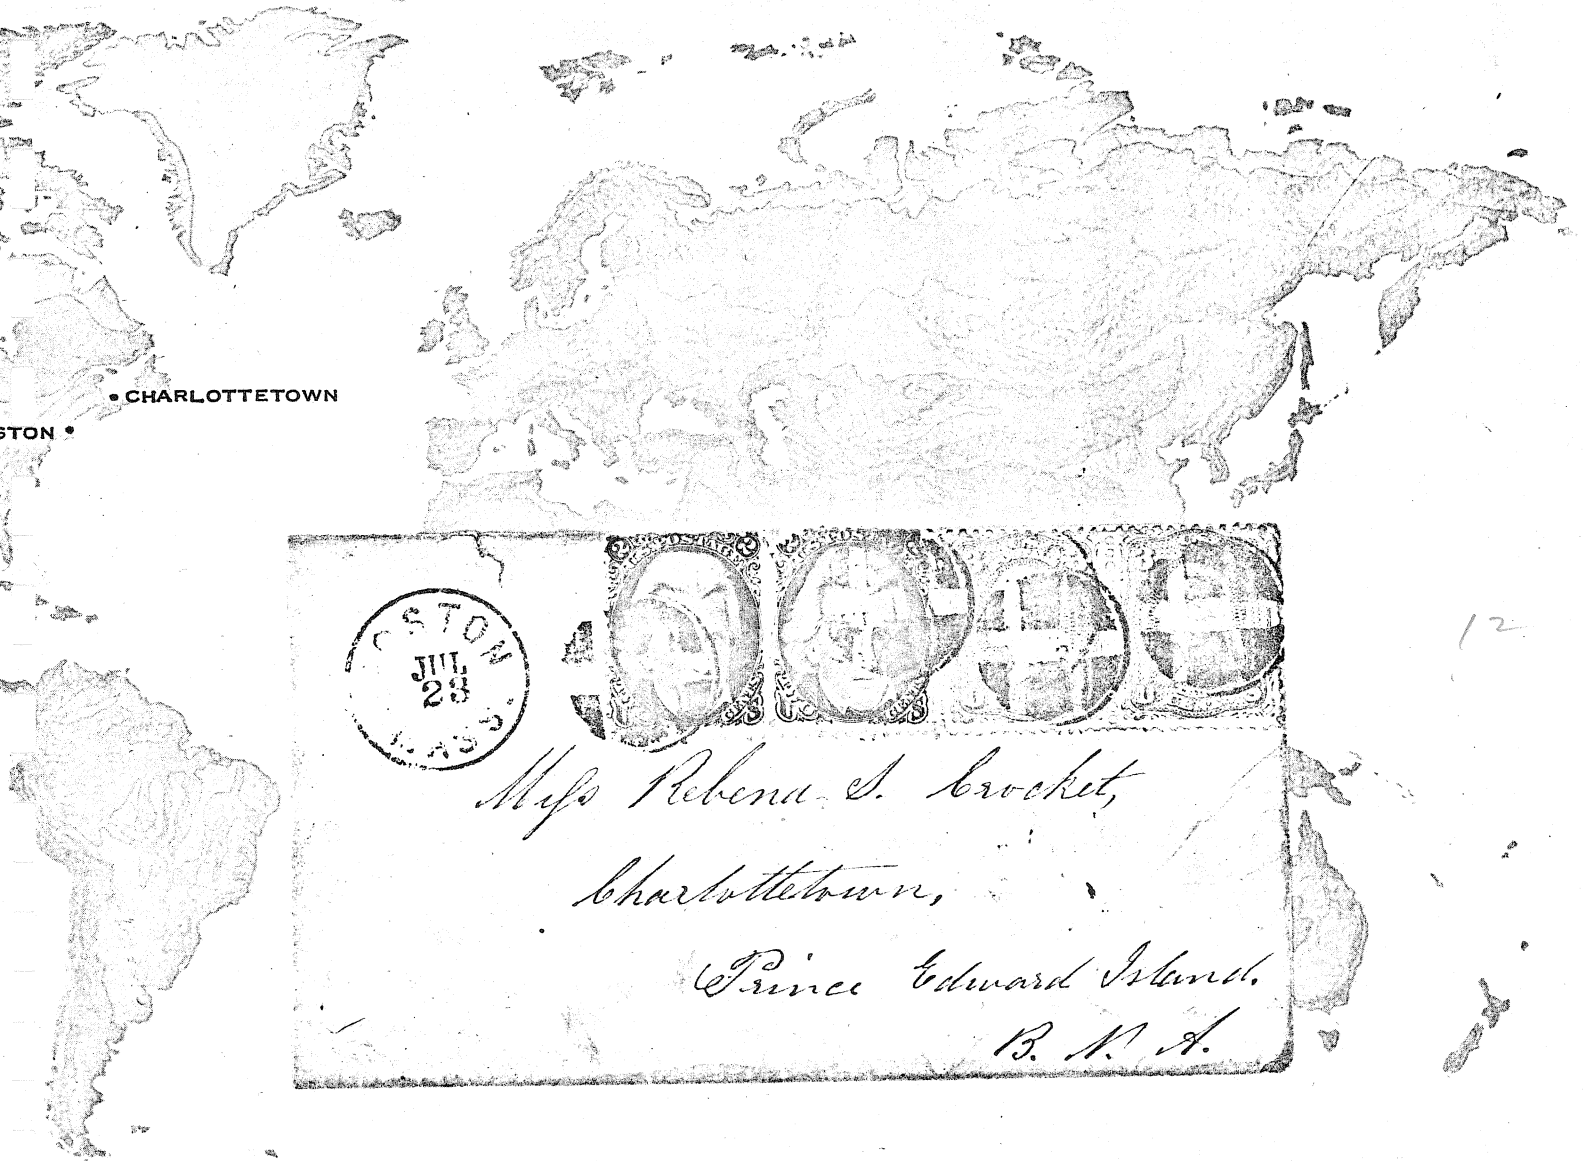 CHARLOTTETOWN
STON
OSTON
JUL
23
MASS.
Miss Rebena S. Crocket,
Charlottetown,
Prince Edward Island.
B. N. A.
12